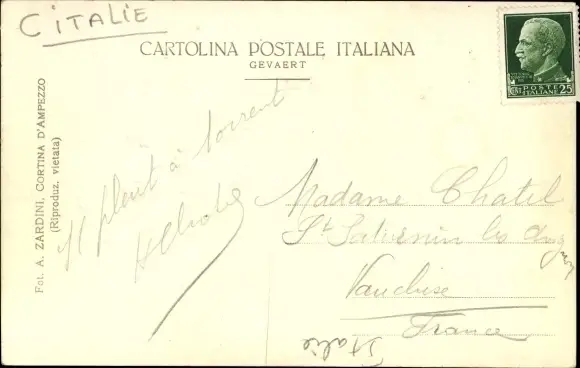 C ITALIE
CARTOLINA POSTALE ITALIANA
GEVAERT
POSTE
ITALIANE 25
Fot. A. ZARDINI, CORTINA D'AMPEZZO
(Riproduz. vietata)
Il pleut à torrent
Madame Chatel
St Saturnin les
Vaucluse
France
Italie